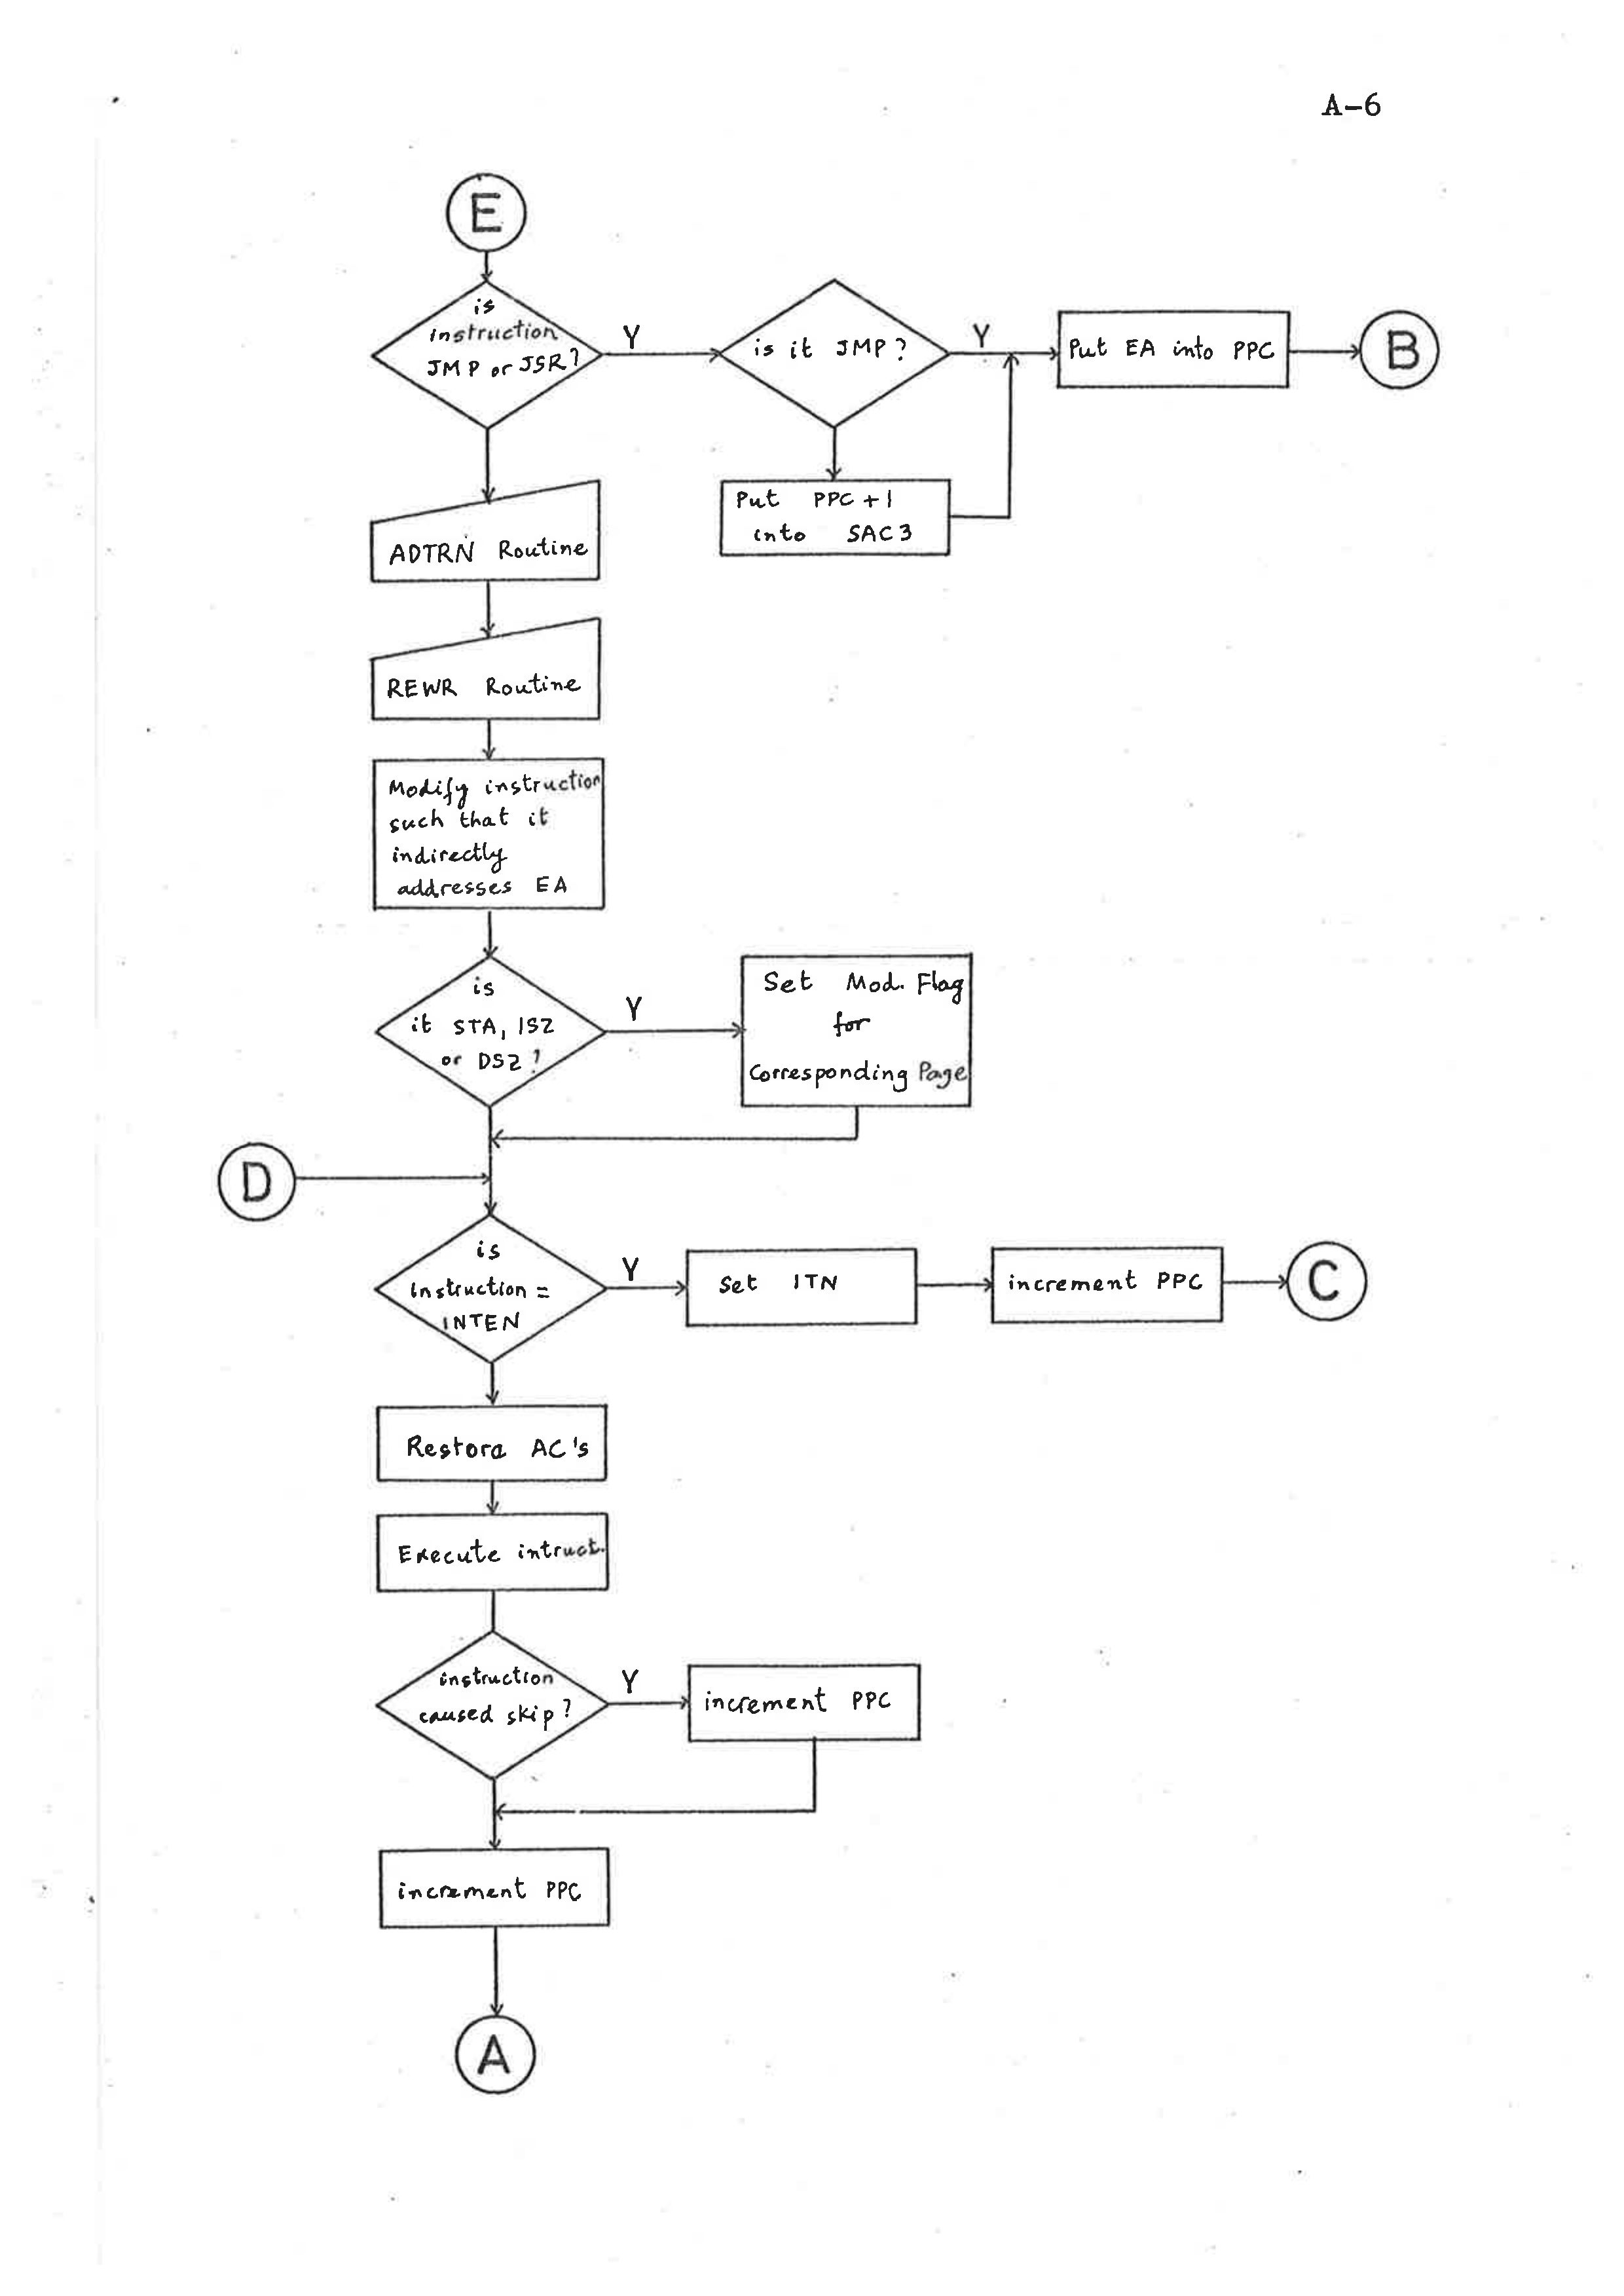 A-6
E
is
instruction
JMP or JSR?
Y
is it JMP?
Y
Put EA into PPC
B
Put PPC+1
into SAC3
ADTRN Routine
REWR Routine
Modify instruction
such that it
indirectly
addresses EA
is
it STA, ISZ
or DSZ?
Y
Set Mod. Flag
for
Corresponding Page
D
is
Instruction =
INTEN
Y
Set ITN
increment PPC
C
Restore AC's
Execute intruct.
instruction
caused skip?
Y
increment PPC
increment PPC
A